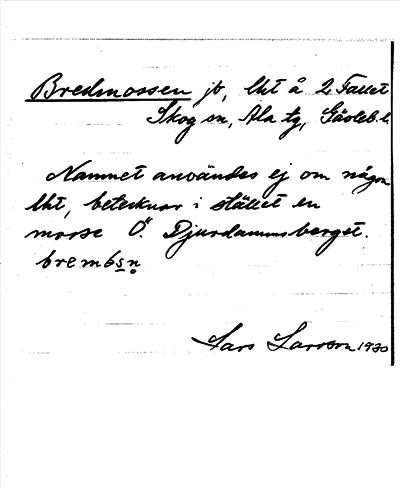 Bredmossen jb, lht å 2 Fallet
Skog sn, Ala tg, Gävleb. l.
Namnet användes ej om någon
lht, betecknar i stället en
mosse Ö. Djurdammsberget.
brembsn
Lars Larsson 1930